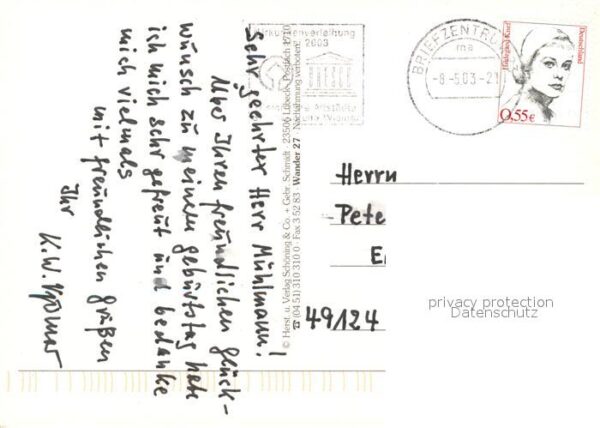 Sehr geehrter Herr Mühlmann!
Über Ihren freundlichen Glück-
wunsch zu meinem Geburtstag habe
ich mich sehr gefreut und bedanke
mich vielmals
mit freundlichen Grüßen
Ihr
K.W.
© Herst. u. Verlag Schöning & Co. + Gebr. Schmidt · 23506 Lübeck, Postfach 1710
☎ (04 51) 310 310 0 · Fax 3 52 83 · Wander 27 · Nachahmung verboten!
2003
BRIEFZENTRUM
ma
-8.-5.03-21
Hildegard Knef
Deutschland
0,55€
Herrn
Pete
49124
privacy protection
Datenschutz